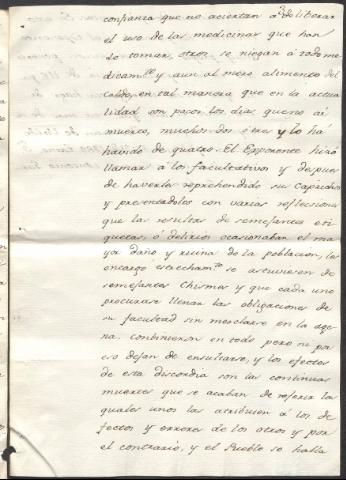 confianza que no aciertan á deliberar
el uso de las medicinas que han
de tomar, otros se niegan á todo me
dicam.to y aun al mero alimento del
caldo, en tal manera que en la actua
lidad son pocos los dias que no ai
muerto, muchos dos ó tres y lo ha
havido de quatro. El Exponente hizó
llamar á los facultativos y despues
de haverles reprehendido su Capricho
y presentadoles con varias reflecciones
que la resulta de semejantes eti
quetas, ó delirios ocasionaban el ma
yor daño y ruina de la poblacion, les
encargo estrecham.te se
semejantes Chismes y que cada uno
procurase llenar las obligaciones de
su facultad sin mesclarse en la age
na. Combinieron en todo pero no pa
eso dejan de ensultarse, y los efectos
de esta discordia son las continuas
muertes que se acaban de referir las
quales unos las atribuien á los de
fectos y errores de los otros y por
el contrario, y el Pueblo se halla